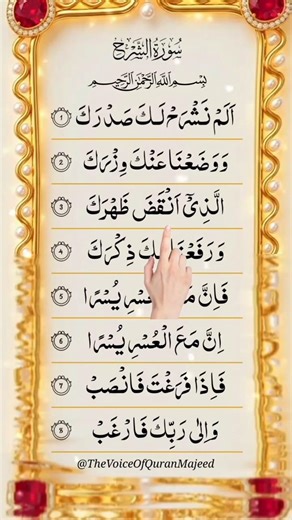 سُورَةُ الشَّرْحِ
بِسْمِ اللهِ الرَّحْمٰنِ الرَّحِيْمِ
اَلَمْ نَشْرَحْ لَكَ صَدْرَكَ ۱
وَوَضَعْنَا عَنْكَ وِزْرَكَ ۲
الَّذِىْٓ اَنْقَضَ ظَهْرَكَ ۳
وَرَفَعْنَا لَكَ ذِكْرَكَ ۴
فَاِنَّ مَعَ الْعُسْرِ يُسْرًا ۵
اِنَّ مَعَ الْعُسْرِ يُسْرًا ۶
فَاِذَا فَرَغْتَ فَانْصَبْ ۷
وَاِلٰى رَبِّكَ فَارْغَبْ ۸
@TheVoiceOfQuranMajeed